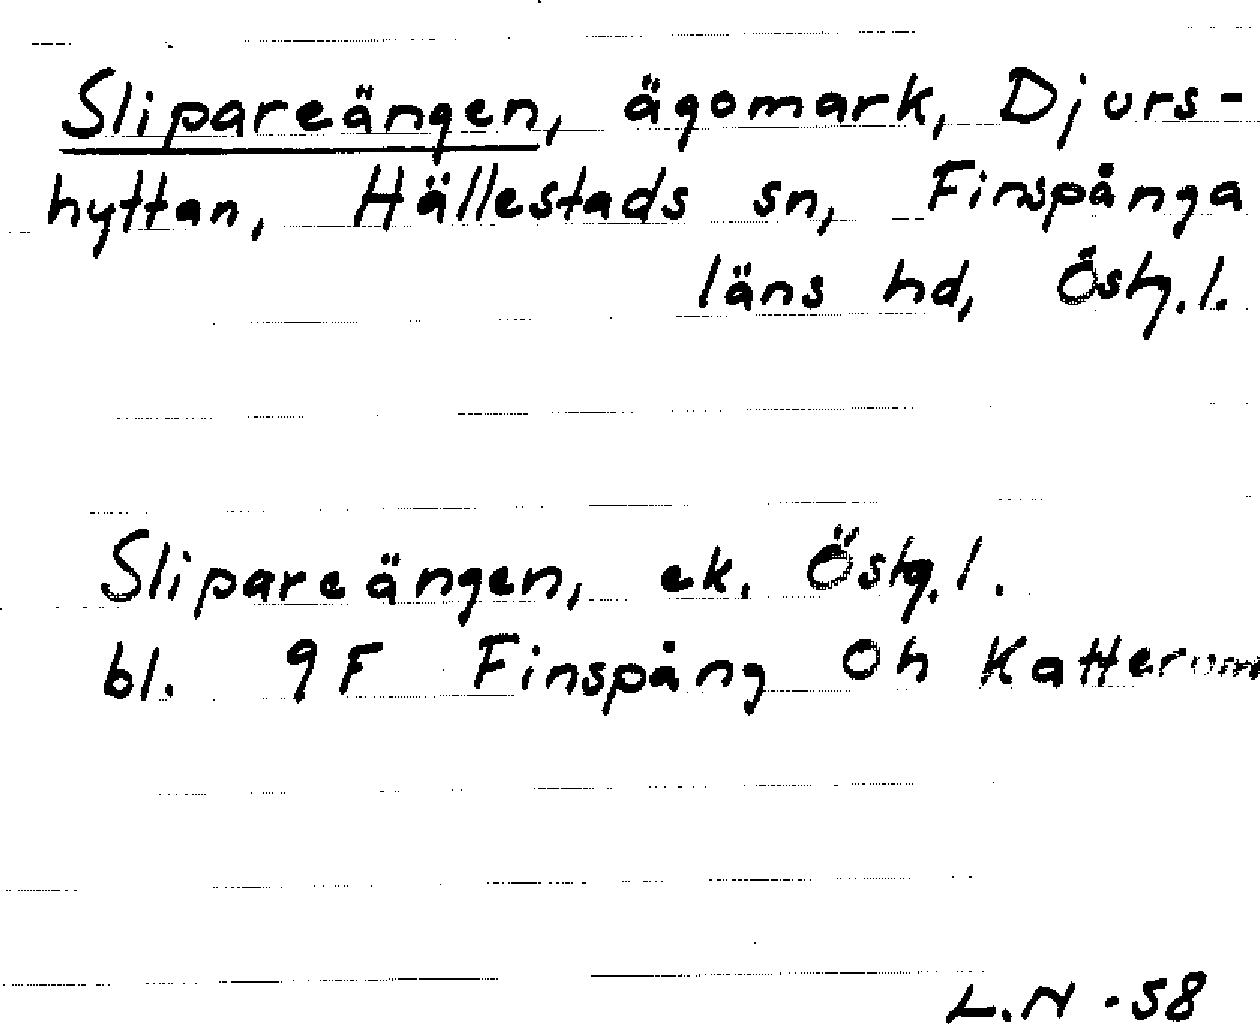 Slipareängen, ägomark, Djurs-
hyttan, Hällestads sn, Finspånga
läns hd, Östg.l.
Slipareängen, ek. Östg.l.
bl. 9F Finspång 0h
L.N -58